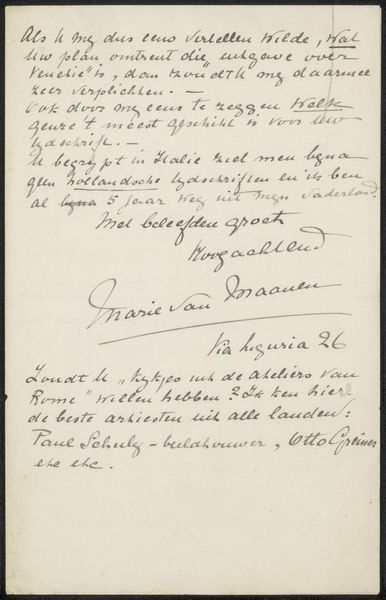 Als U mij dus eens vertellen wilde, wat
Uw plan omtrent die „uitgave over
Venetie" is, dan zoudt U mij daarmee
zeer verplichten. —
Ook door mij eens te zeggen welk
genre 't meest geschikt is voor Uw
tijdschrift. —
U begrijpt in Italie ziet men bijna
geen hollandsche tijdschriften en ik ben
al bijna 5 jaar weg uit mijn Vaderland.
Met beleefden groet
Hoogachtend
Marie van Maanen
Via Liguria 26
Zoudt U „kijkjes uit de ateliers van
Rome" willen hebben? Ik ken hier
de beste artiesten uit alle landen:
Paul Schulz – beeldhouwer, Otto Greiner
etc etc.